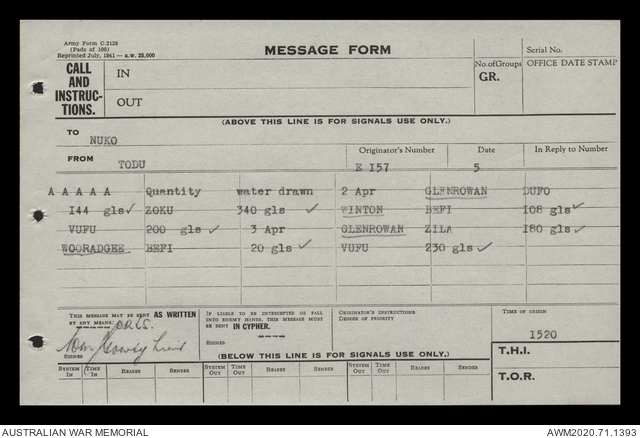 Army Form C.2128
(Pads of 100)
Reprinted July, 1941— A.W. 25,000
MESSAGE FORM
Serial No.
CALL AND INSTRUC-TIONS.
IN
OUT
No. of Groups
GR.
OFFICE DATE STAMP
(ABOVE THIS LINE IS FOR SIGNALS USE ONLY.)
TO
NUKO
FROM
TODU
Originator's Number
E I57
Date
5
In Reply to Number
A A A A A Quantity water drawn 2 Apr GLENROWAN DUFO
I44 gls✓ ZOKU 340 gls ✓ WINTON BEFI I08 gls✓
VUFU 200 gls ✓ 3 Apr GLENROWAN ZILA I80 gls✓
WOORADGEE BEFI 20 gls ✓ VUFU 230 gls ✓
THIS MESSAGE MAY BE SENT AS WRITTEN
BY ANY MEANS.
SIGNED
IF LIABLE TO BE INTERCEPTED OR FALL
INTO ENEMY HANDS, THIS MESSAGE MUST
BE SENT IN CYPHER.
SIGNED
ORIGINATOR'S INSTRUCTIONS
DEGREE OF PRIORITY
TIME OF ORIGIN
I520
T.H.I.
T.O.R.
(BELOW THIS LINE IS FOR SIGNALS USE ONLY.)
SYSTEM IN TIME IN READER SENDER SYSTEM OUT TIME OUT READER SENDER SYSTEM OUT TIME OUT READER SENDER
AUSTRALIAN WAR MEMORIAL
AWM2020.71.1393